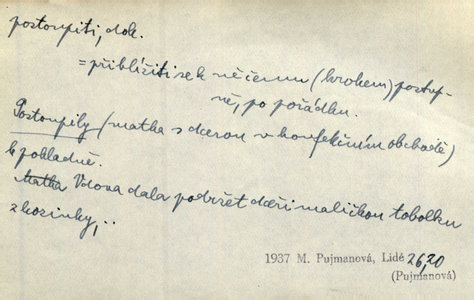 postoupiti, dok.
= přiblížiti se k něčemu (krokem) postup-
ně, po pořádku.
Postoupily (matka s dcerou v konfekčním obchodě)
k pokladně.
Matka Vdova dala podržet dceři maličkou tobolku
z kozinky, ..
1937 M. Pujmanová, Lidé 26,20
(Pujmanová)